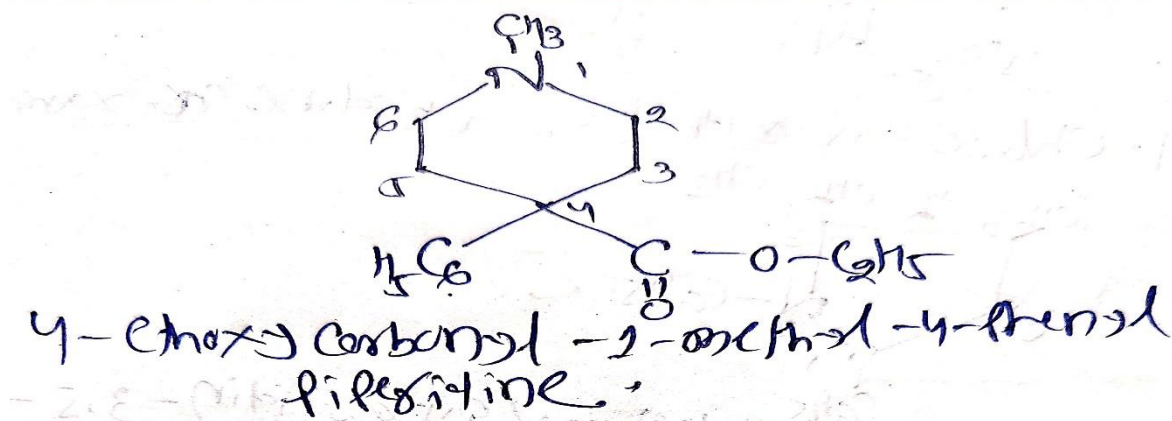 CH3
N 1
6 2
5 3
4
H5C6 C - O - C2H5
O
4 - ethoxy carbonyl - 1 - methyl - 4 - phenyl
piperitine .